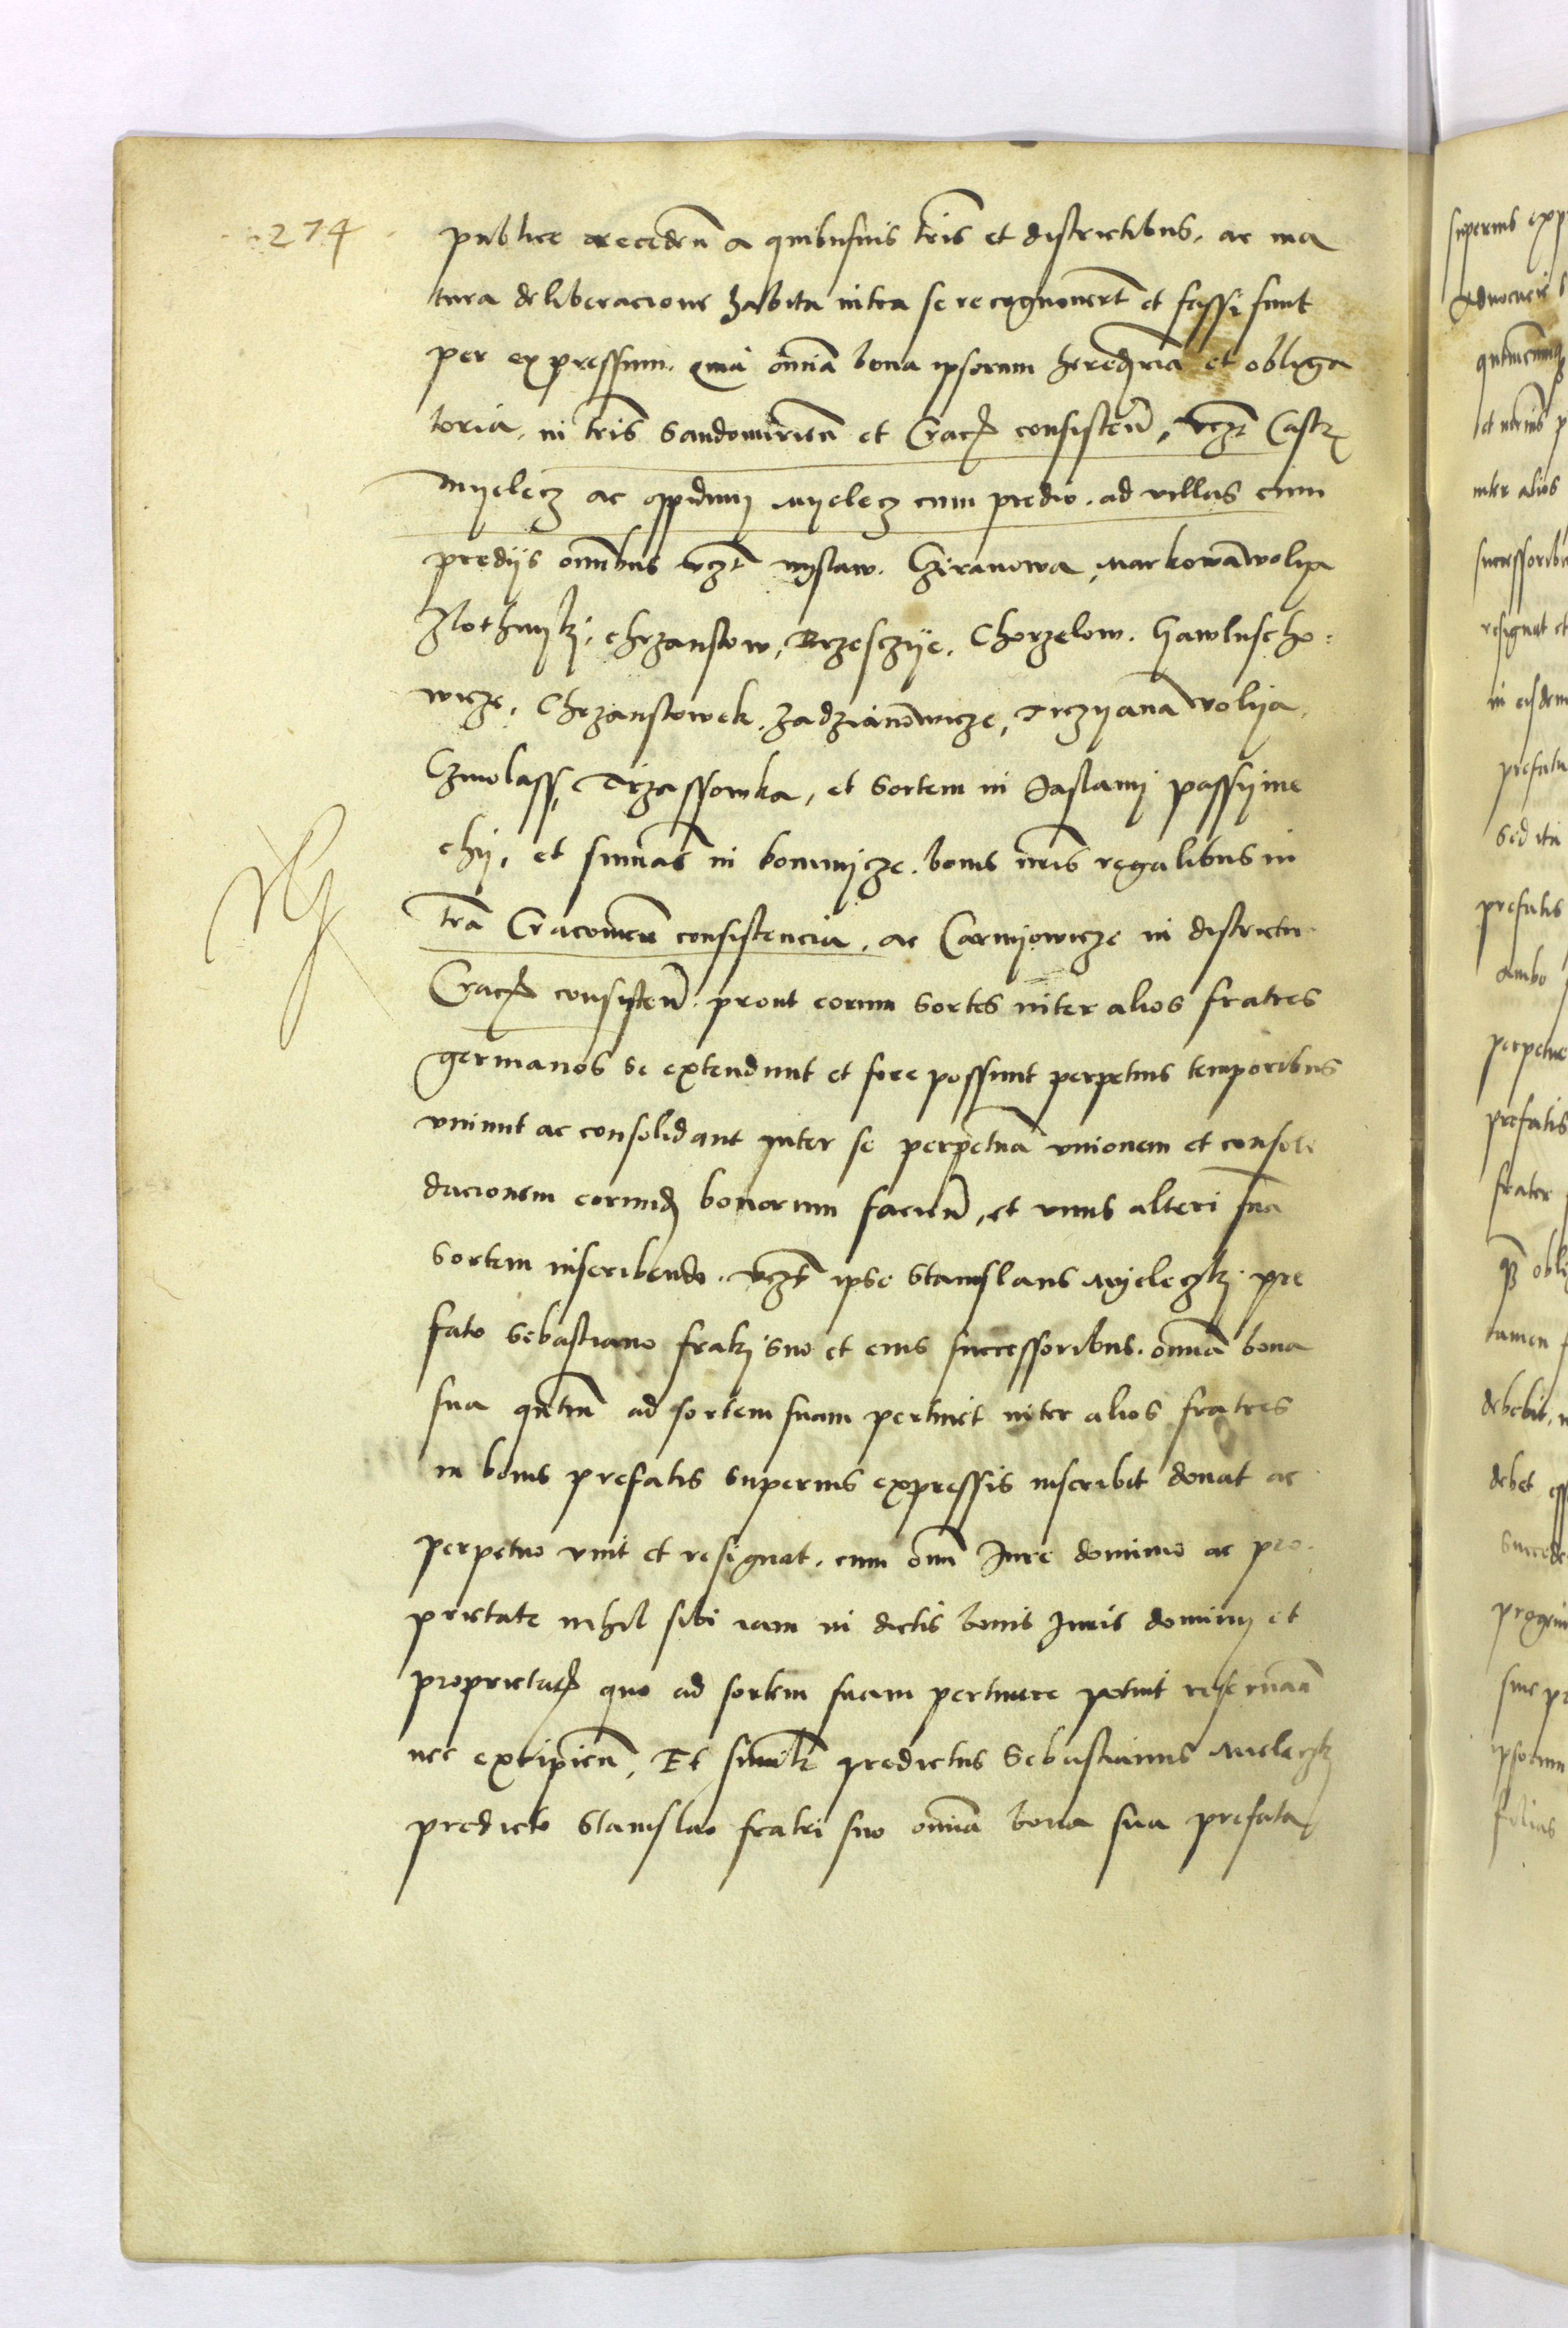 274
publice recedeñ a quibusuis tr̃is et districtibus. ac ma
tura deliberacione habita intra se recognouer̃t et fassi sunt
per expressum. quia om̃ia bona ipsorum hereditaria et obliga
toria. in tr̃is Sandomirieñ et Crac̃ consisteñ, vczt Castr̃
Myelecz ac oppidum Myelecz cum predio. ad villas cum
predijs om̃ibus vczt wystaw. Cziranowa, Markowa wolya
Zlothnyky, Chrzanstow, Brzesczije, Chorzelow. Gawluscho:
wicze, Chrzanstowek. Zadzianowicze, Triczyana wolija.
Czmolass, Trzassowka, et Sortem in Jaslany passyme
chy, et sum̃as in bonis nr̃is regalibus in
tr̃a Cracouieñ consistencia, ac Carnijowicze in districtu
Crac̃ consisteñ. prout eorum sortes inter alios fratres
germanos se extendunt et fore possunt perpetuis temporibus
vniunt ac consolidant inter se perpetuã vnionem et consoli
dacionem eorund̃ bonorum facieñ, et vnus alteri suã
sortem inscribendo. vczt ipse Stanislaus Myeleczky pre
fato Sebastiano fratri suo et eius successoribus. om̃ia bona
sua quãtum ad sortem suam pertinet inter alios fratres
in bonis prefatis superius expressis inscribit donat ac
perpetuo vnit et resignat. cum om̃i Iure dominio ac pro.
prietate nihil sibi iam in dictis bonis Iuris dominij et
proprietatis quo ad sortem suam pertinere potuit reseruañ
nec excipieñ, Et simil̃r predictus Sebastianus Mieleczky
predicto Stanislao fratri suo om̃ia bona sua prefata